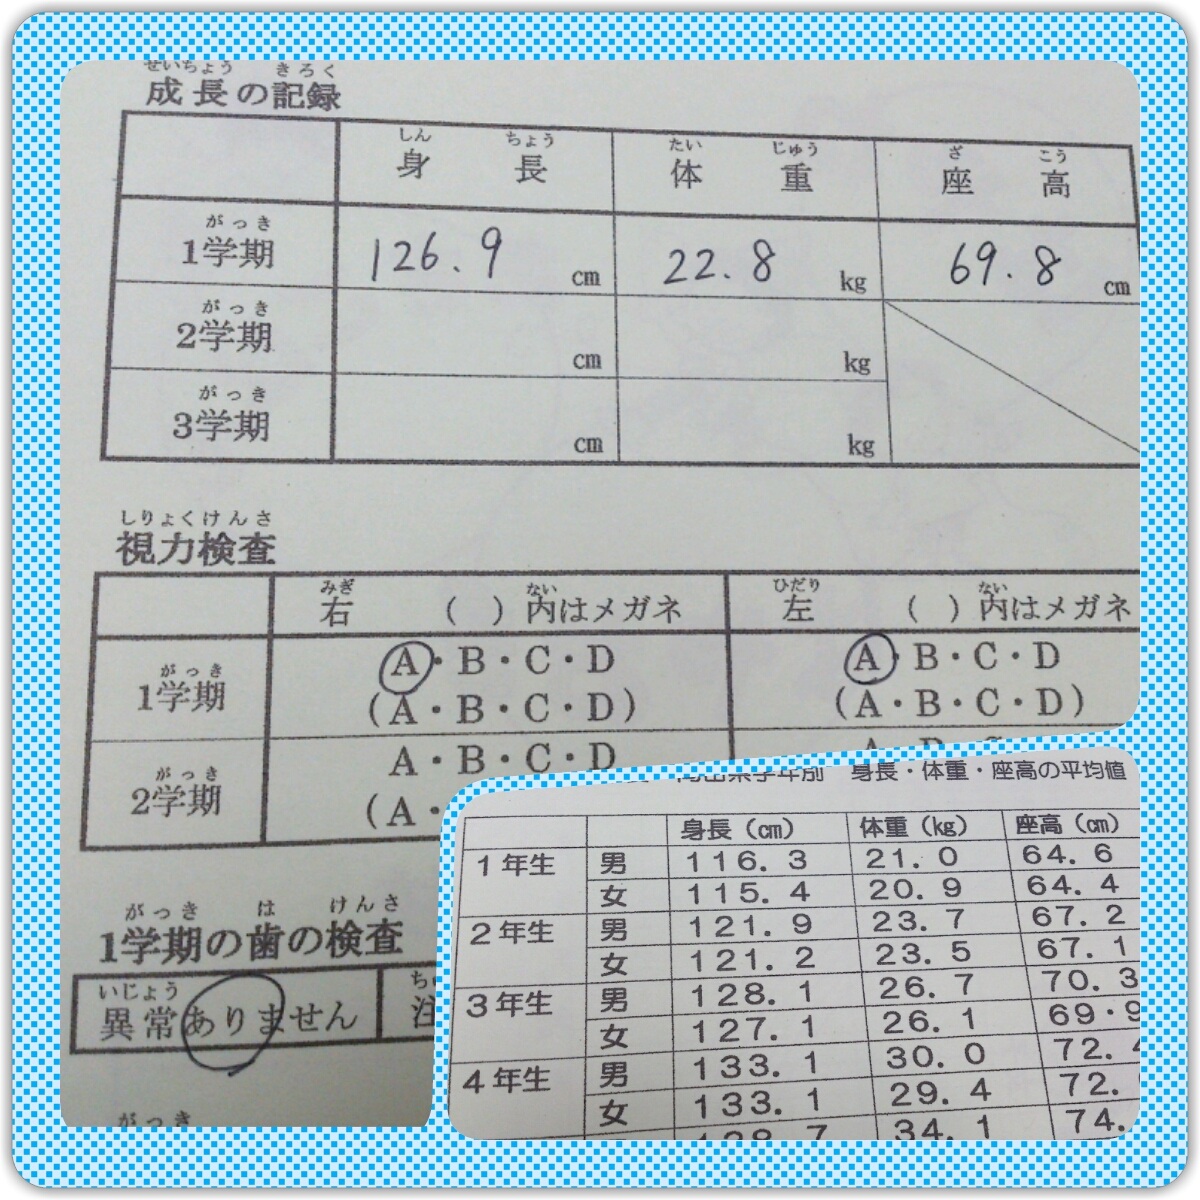 せいちょう きろく
成長の記録
しん ちょう たい じゅう ざ こう
身 長 体 重 座 高
がっき
1学期 126.9 cm 22.8 kg 69.8 cm
がっき
2学期 cm kg
がっき
3学期 cm kg
しりょくけんさ
視力検査
みぎ ない ひだり ない
右 ( ) 内はメガネ 左 ( ) 内はメガネ
がっき
1学期 A・B・C・D A・B・C・D
(A・B・C・D) (A・B・C・D)
がっき
2学期 A・B・C・D
(A・
がっき は けんさ
1学期の歯の検査
いじょう
異常ありません 注
がっき
学年別 身長・体重・座高の平均値
身長(㎝) 体重(㎏) 座高(㎝)
1年生 男 116.3 21.0 64.6
女 115.4 20.9 64.4
2年生 男 121.9 23.7 67.2
女 121.2 23.5 67.1
3年生 男 128.1 26.7 70.3
女 127.1 26.1 69.9
4年生 男 133.1 30.0 72.
女 133.1 29.4 72.
34.1 74.